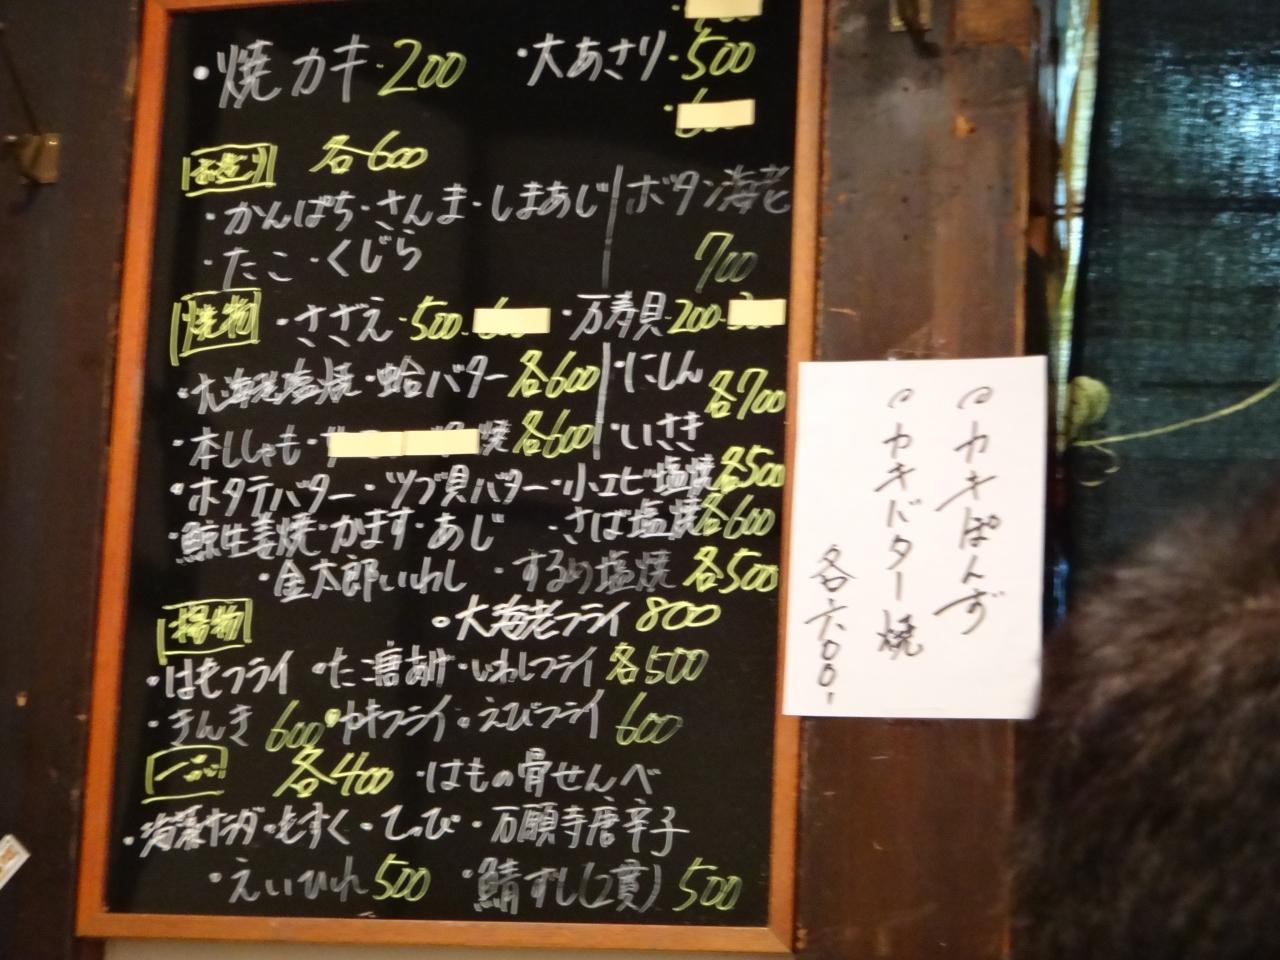 ・焼カキ・200 ・大あさり・500
お造り 各600
・かんぱち・さんま・しまあじ ボタン海老
・たこ・くじら 700
焼物 ・さざえ・500・ ・万寿貝・200・
・大海老塩焼・蛤バター 各600 ・にしん 各700
・本ししゃも・ 焼 各600 ・いさき
・ホタテバター・ツブ貝バター・小エビ塩焼 各500
・鯨生姜焼・かます・あじ ・さば塩焼 各600
・金太郎いわし ・するめ塩焼 各500
揚物 ・大海老フライ 800
・はもフライ ・たこ唐あげ・いわしフライ 各500
・きんき 600 ・カキフライ・えびフライ 600
一品 各400 ・はもの骨せんべ
・海藻サラダ・もずく・てっぴ・万願寺唐辛子
・えいひれ 500 ・鯖ずし(2貫) 500
・カキぽんず
・カキバター焼
各六00-